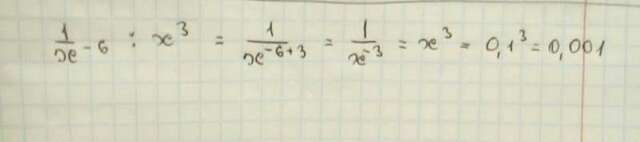 1/x⁻⁶ : x³ = 1/x⁻⁶⁺³ = 1/x⁻³ = x³ = 0,1³ = 0,001